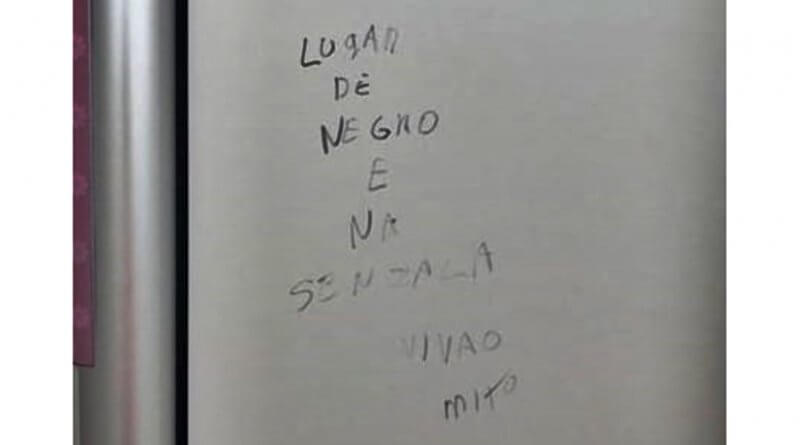 LUGAR
DE
NEGRO
E
NA
SENZALA
VIVAO
MITO